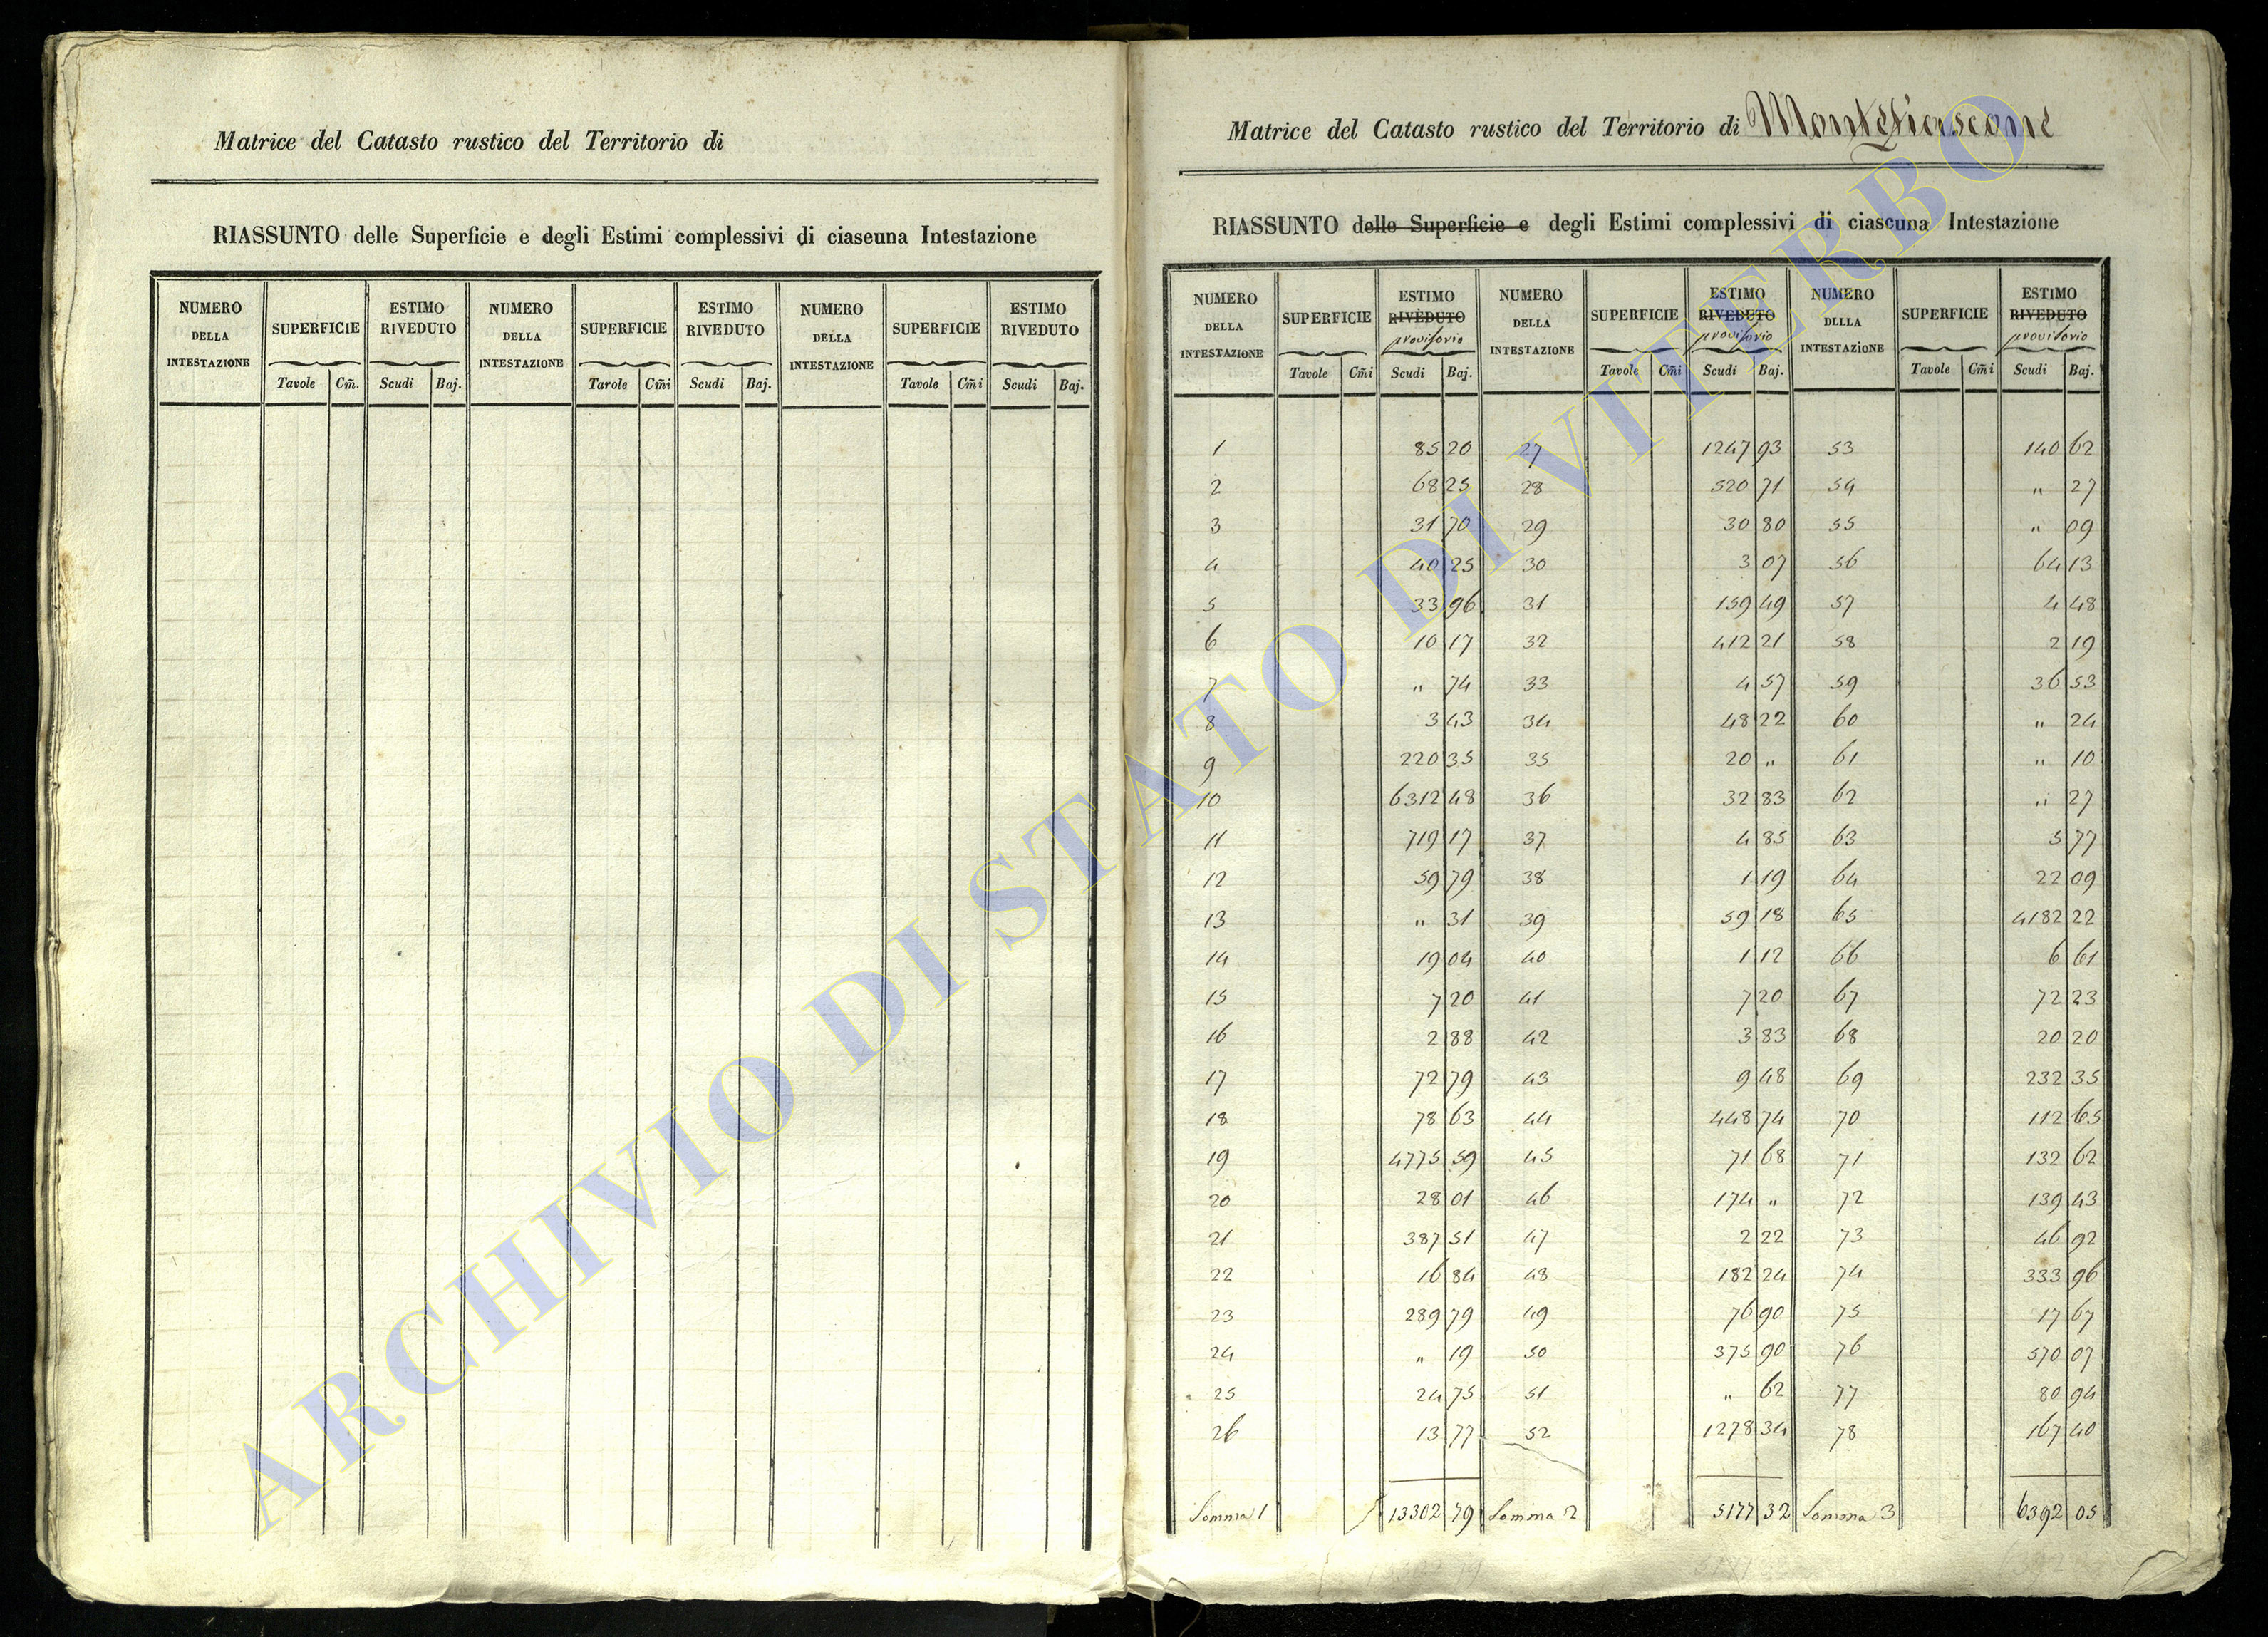 Matrice del Catasto rustico del Territorio di
RIASSUNTO delle Superficie e degli Estimi complessivi di ciascuna Intestazione
NUMERO DELLA INTESTAZIONE SUPERFICIE ESTIMO RIVEDUTO NUMERO DELLA INTESTAZIONE SUPERFICIE ESTIMO RIVEDUTO NUMERO DELLA INTESTAZIONE SUPERFICIE ESTIMO RIVEDUTO
Tavole Cm̃. Scudi Baj. Tarole Cm̃i Scudi Baj. Tavole Cm̃i Scudi Baj.
Matrice del Catasto rustico del Territorio di Montefiascone
RIASSUNTO delle Superficie e degli Estimi complessivi di ciascuna Intestazione
NUMERO DELLA INTESTAZIONE SUPERFICIE ESTIMO RIVEDUTO provisorio NUMERO DELLA INTESTAZIONE SUPERFICIE ESTIMO RIVEDUTO provisorio NUMERO DLLLA INTESTAZIONE SUPERFICIE ESTIMO RIVEDUTO provisorio
Tavole Cm̃i Scudi Baj. Tavole Cm̃i Scudi Baj. Tavole Cm̃i Scudi Baj.
1 85 20 27 1247 93 53 140 62
2 68 25 28 520 71 54 " 27
3 31 70 29 30 80 55 " 09
4 40 25 30 3 07 56 64 13
5 33 96 31 159 49 57 4 48
6 10 17 32 412 21 58 2 19
7 " 74 33 4 57 59 36 53
8 3 43 34 48 22 60 " 24
9 220 35 35 20 " 61 " 10
10 6312 48 36 32 83 62 " 27
11 719 17 37 4 85 63 5 77
12 59 79 38 1 19 64 22 09
13 " 31 39 59 18 65 4182 22
14 19 04 40 1 12 66 6 61
15 7 20 41 7 20 67 72 23
16 2 88 42 3 83 68 20 20
17 72 79 43 9 48 69 232 35
18 78 63 44 448 74 70 112 65
19 4775 59 45 71 68 71 132 62
20 28 01 46 174 " 72 139 43
21 387 51 47 2 22 73 46 92
22 16 84 48 182 24 74 333 96
23 289 79 49 76 90 75 17 67
24 " 19 50 375 90 76 570 07
25 24 75 51 " 62 77 80 94
26 13 77 52 1278 34 78 167 40
Somma 1 13302 79 Somma 2 5177 32 Somma 3 6392 05
ARCHIVIO DI STATO DI VITERBO